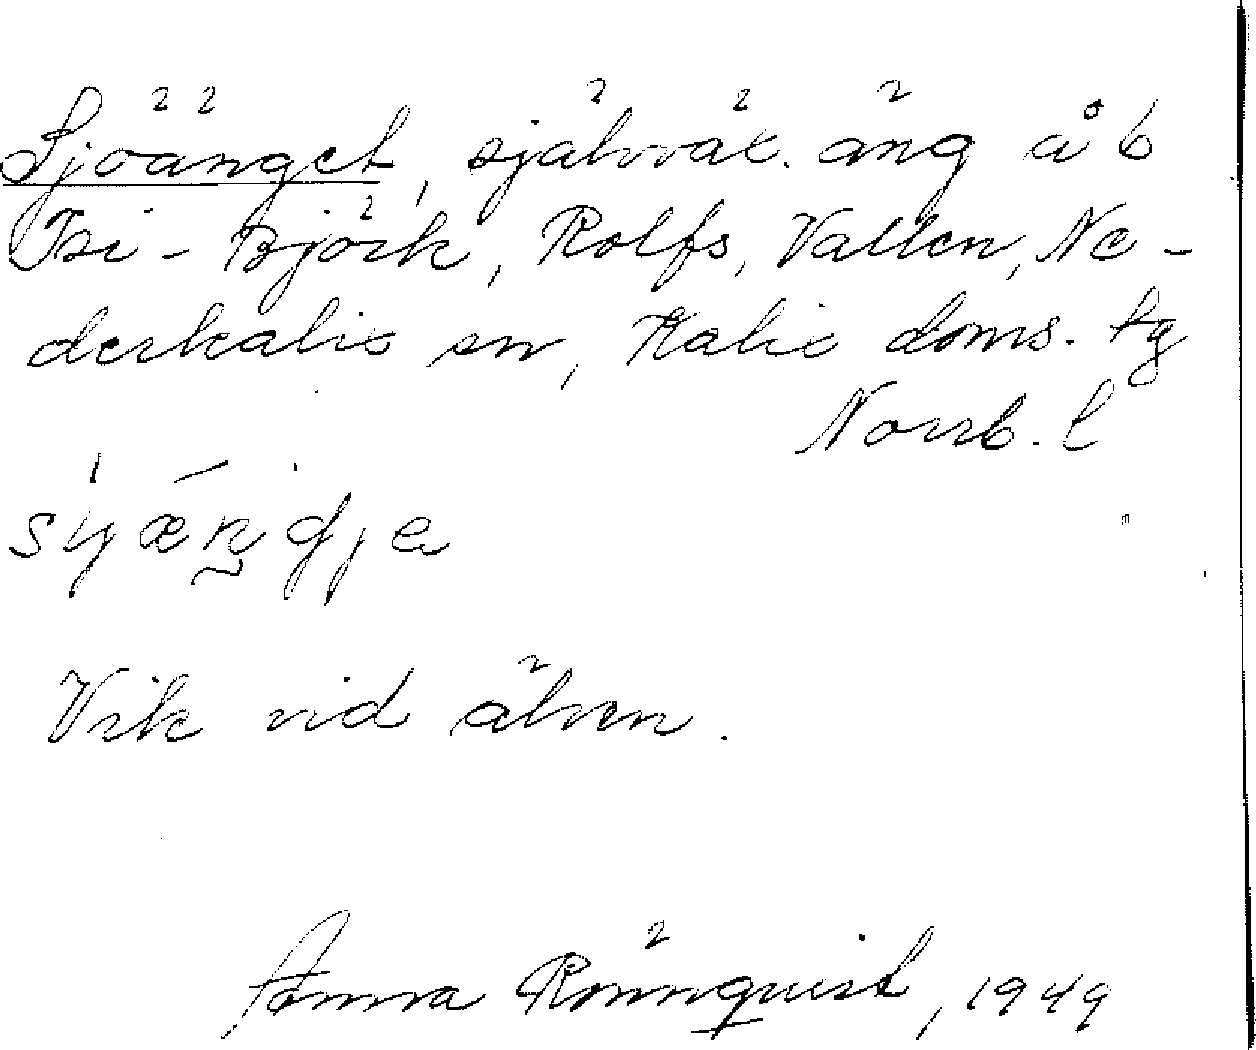 Sjöänget, självväx. äng å 6
Tri-Björk, Rolfs, Vallen, Ne-
derkalix sn, Kalix doms. tg
Norrb. l
Vik vid älven.
Anna Rönnquist, 1949